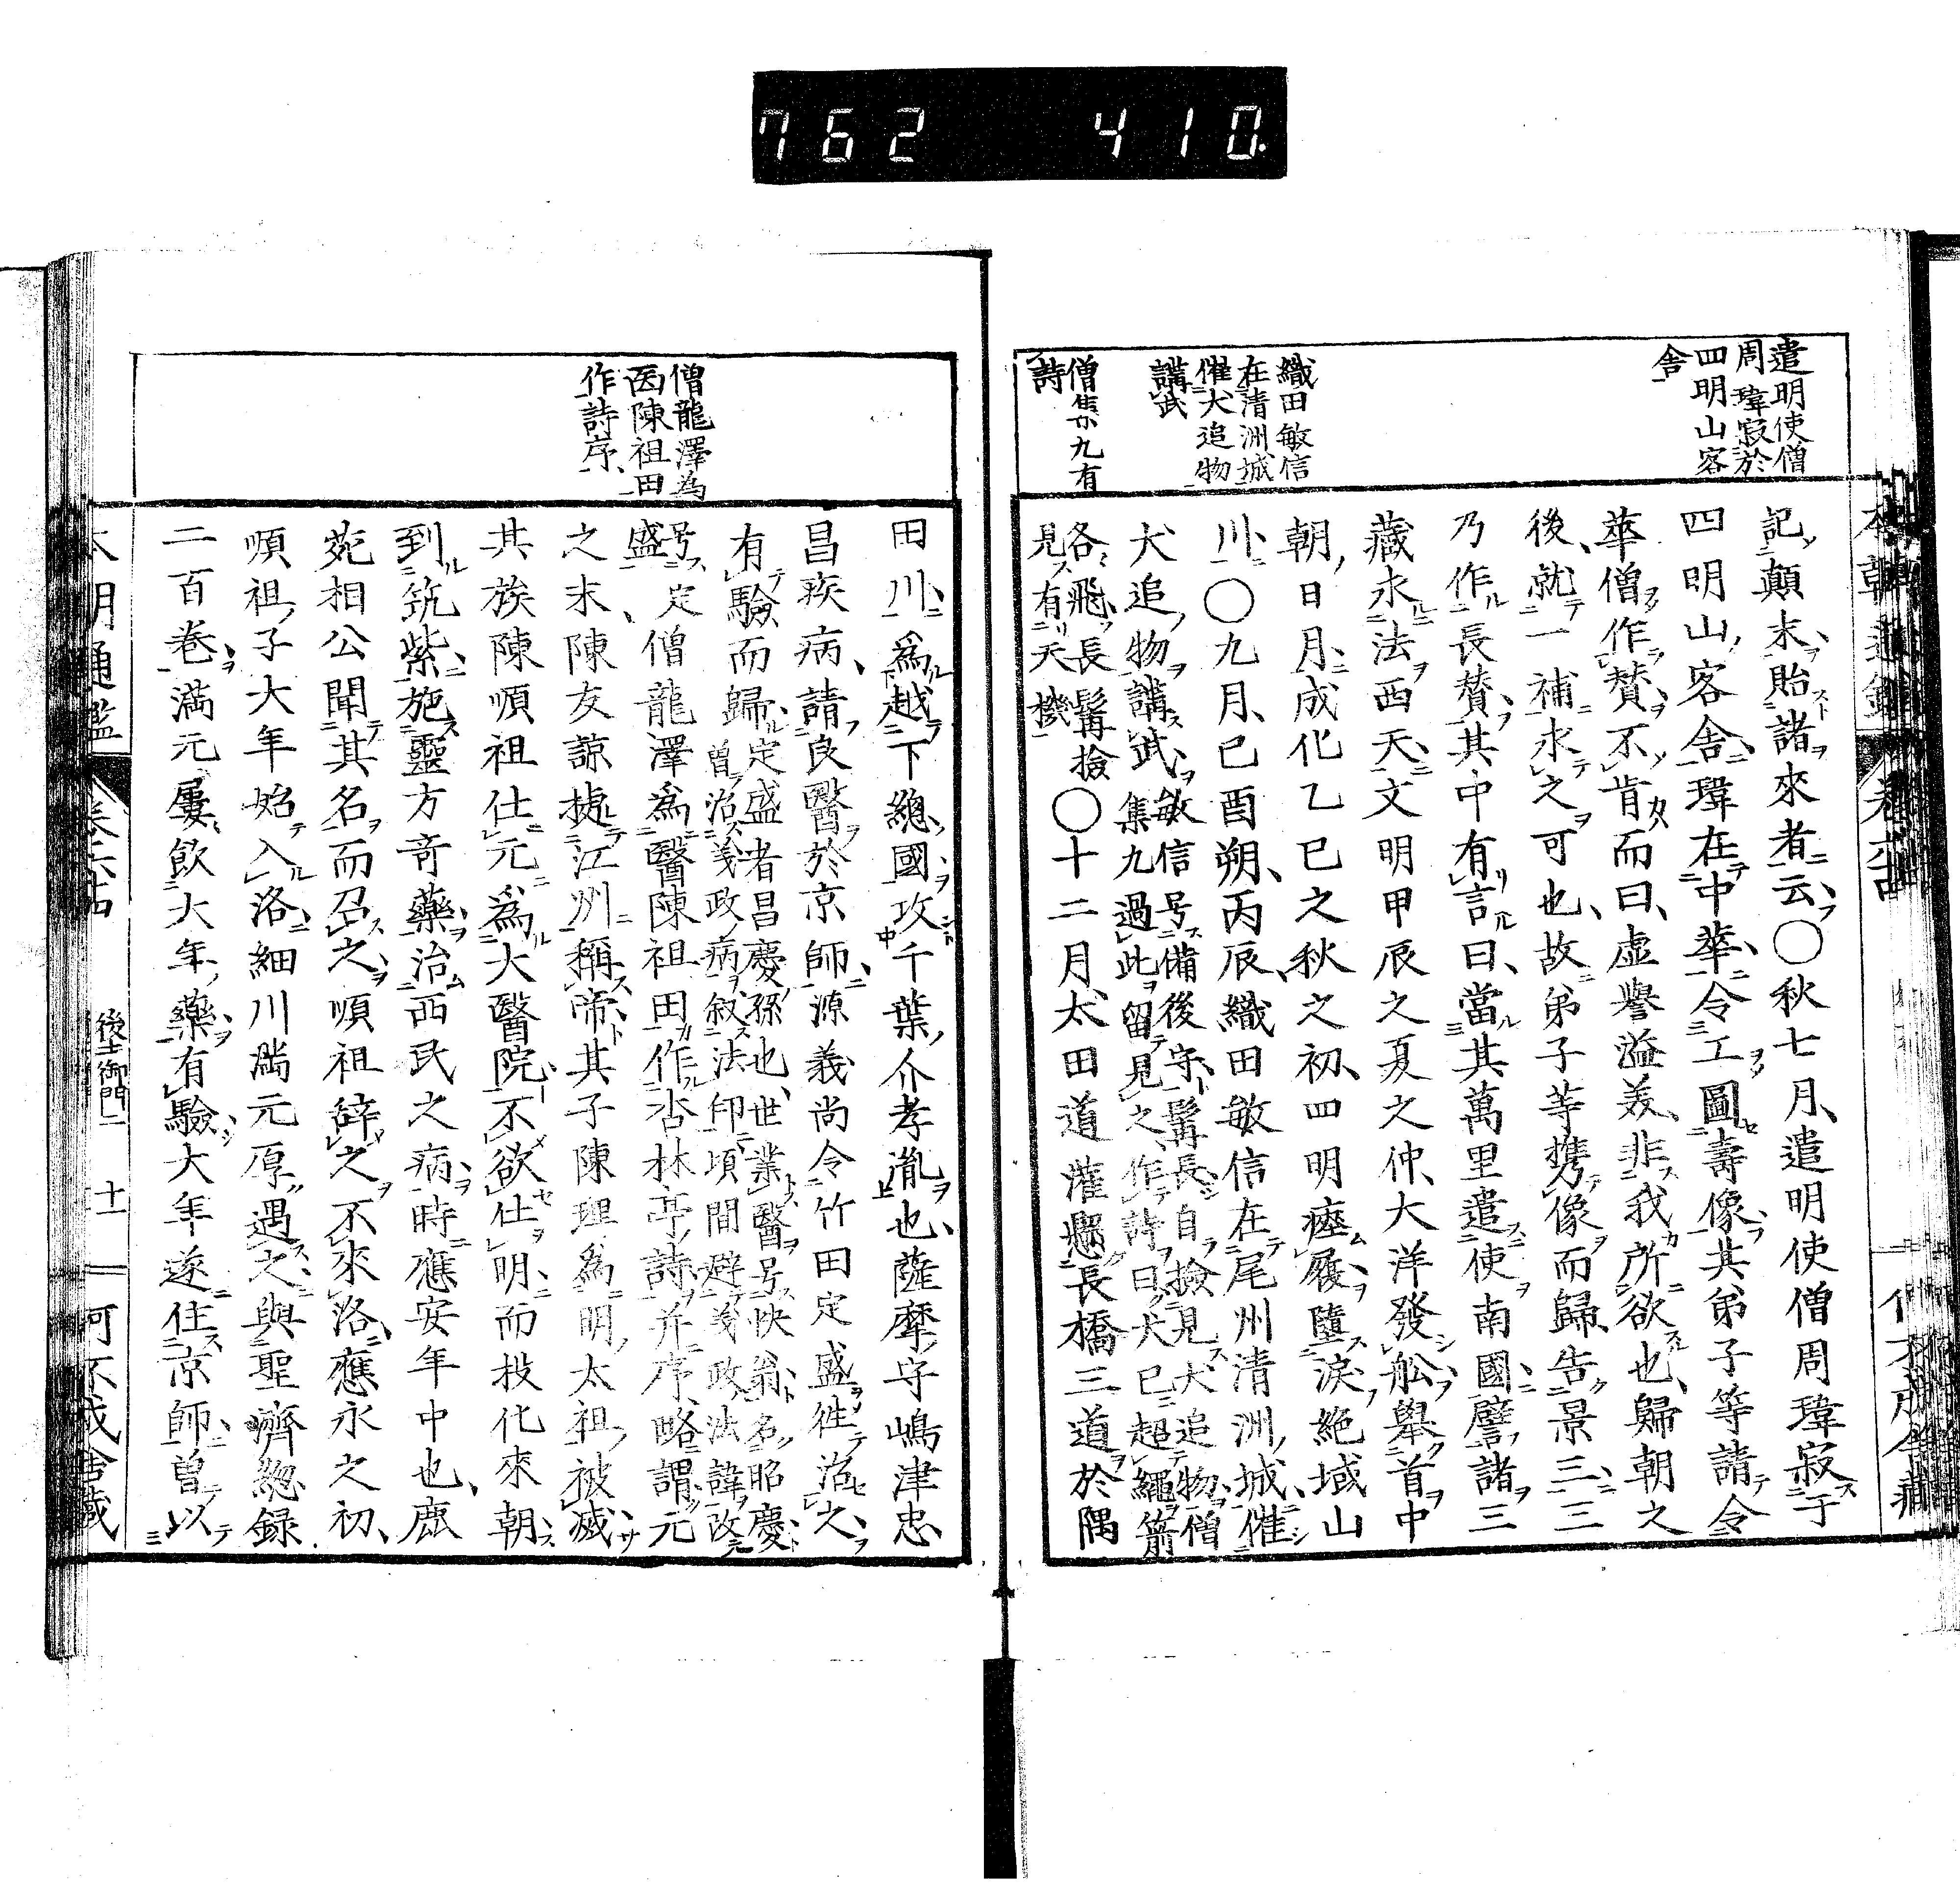 762 410.
遣明使僧
周瑋寂於
四明山客
舎
織田敏信
在清洲城
催犬追物
講武
僧集九有
詩
記顛末貽諸來者云○秋七月、遣明使僧周瑋寂于
四明山客舎瑋在中華令工圖壽像其弟子等請令
華僧作賛不肯而曰、虚譽溢美、非我所欲也、歸朝之
後、就一補氷之可也、故弟子等携像而歸、告景三三
乃作長賛其中有言曰、當其萬里遣使南國譬諸三
藏永法西天文明甲辰之夏之仲、大洋發舩擧首中
朝日月、成化乙巳之秋之初、四明瘞履墮淚絶域山
川○九月、己酉朔、丙辰、織田敏信在尾州清洲城、催
犬追物講武
敏信号備後守、髯長自撿見犬追物僧
集九過此留見之、作詩曰、犬已超繩箭
各飛長髯撿
見有天機
○十二月、太田道灌懸長橋三道於隅
僧龍澤為
医陳祖田
作詩序
田川爲越下總國攻千葉介孝胤也、薩摩守嶋津忠
昌疾病、請良醫於京師、源義尚令竹田定盛徃治之
有驗而歸
定盛者昌慶孫也、世業醫号快翁名昭慶
曽治義政病叙法印頃間避義政法諱改
号定
盛
僧龍澤爲醫陳祖田作杏林亭詩并序、略謂元
之末、陳友諒據江州稱帝其子陳理爲明太祖被滅
其族陳順祖仕元爲大醫院不欲仕明而投化來朝
到筑紫施靈方奇藥治西民之病時應安年中也、鹿
苑相公聞其名而召之順祖辭之不來洛應永之初、
順祖子大年始入洛細川満元厚遇之與聖濟総録
二百巻満元屢飲大年藥有驗大年遂住京師曽以
本朝通鑑
後土御門一
十一